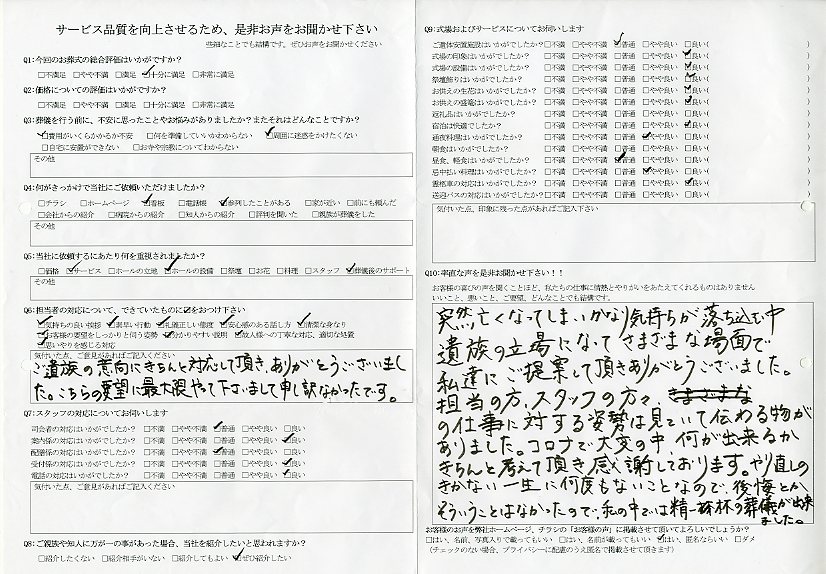 サービス品質を向上させるため、是非お声をお聞かせ下さい
些細なことでも結構です。ぜひお声をお聞かせください
Q1:今回のお葬式の総合評価はいかがですか?
□不満足 □やや不満 □満足 ☑十分に満足 □非常に満足
Q2:価格についての評価はいかがですか?
□不満足 □やや不満 □満足 □十分に満足 □非常に満足
Q3:葬儀を行う前に、不安に思ったことやお悩みがありましたか?またそれはどんなことですか?
☑費用がいくらかかるか不安 □何を準備していいかわからない ☑周囲に迷惑をかけたくない
□自宅に安置ができない □お寺や宗教についてわからない
その他
Q4:何がきっかけで当社にご依頼いただけましたか?
□チラシ □ホームページ ☑看板 □電話帳 ☑参列したことがある □家が近い □前にも頼んだ
□会社からの紹介 □病院からの紹介 □知人からの紹介 □評判を聞いた □親族が葬儀をした
その他
Q5:当社に依頼するにあたり何を重視されましたか?
□価格 ☑サービス □ホールの立地 ☑ホールの設備 □祭壇 □お花 □料理 □スタッフ ☑葬儀後のサポート
その他
Q6:担当者の対応について、できていたものに☑をおつけ下さい
☑気持ちの良い挨拶 ☑素早い行動 ☑礼儀正しい態度 ☑安心感のある話し方 ☑清潔な身なり
☑お客様の要望をしっかりと伺う姿勢 ☑分かりやすい説明 ☑故人様への丁寧な対応、適切な処置
☑思いやりを感じる対応
気付いた点、ご意見があればご記入ください
ご遺族の意向にきちんと対応して頂き、ありがとうございまし
た。こちらの要望に最大限やって下さいまして申し訳なかったです。
Q7:スタッフの対応についてお伺いします
司会者の対応はいかがでしたか? □不満 □やや不満 ☑普通 □やや良い □良い
案内係の対応はいかがでしたか? □不満 □やや不満 □普通 □やや良い ☑良い
配膳係の対応はいかがでしたか? □不満 □やや不満 ☑普通 □やや良い □良い
受付係の対応はいかがでしたか? □不満 □やや不満 □普通 □やや良い ☑良い
電話の対応はいかがでしたか? □不満 □やや不満 □普通 □やや良い ☑良い
気付いた点、ご意見があればご記入ください
Q8:ご親族や知人に万が一の事があった場合、当社を紹介したいと思われますか?
□紹介したくない □紹介相手がいない □紹介してもよい ☑ぜひ紹介したい
Q9:式場およびサービスについてお伺いします
ご遺体安置施設はいかがでしたか? □不満 □やや不満 ☑普通 □やや良い □良い( )
式場の印象はいかがでしたか? □不満 □やや不満 □普通 □やや良い ☑良い( )
式場の設備はいかがでしたか? □不満 □やや不満 □普通 □やや良い ☑良い( )
祭壇飾りはいかがでしたか? □不満 □やや不満 □普通 □やや良い ☑良い( )
お供えの生花はいかがでしたか? □不満 □やや不満 □普通 □やや良い ☑良い( )
お供えの盛篭はいかがでしたか? □不満 □やや不満 □普通 □やや良い ☑良い( )
返礼品はいかがでしたか? □不満 □やや不満 □普通 □やや良い □良い( )
宿泊は快適でしたか? □不満 □やや不満 □普通 □やや良い ☑良い( )
通夜料理はいかがでしたか? □不満 □やや不満 □普通 ☑やや良い □良い( )
朝食はいかがでしたか? □不満 □やや不満 □普通 □やや良い □良い( )
昼食、軽食はいかがでしたか? □不満 □やや不満 ☑普通 □やや良い □良い( )
忌中払い料理はいかがでしたか? □不満 □やや不満 □普通 ☑やや良い □良い( )
霊柩車の対応はいかがでしたか? □不満 □やや不満 □普通 □やや良い ☑良い( )
送迎バスの対応はいかがでしたか? □不満 □やや不満 □普通 □やや良い □良い( )
気付いた点、印象に残った点があればご記入下さい
Q10:率直な声を是非お聞かせ下さい!!
お客様の喜びの声を聞くことほど、私たちの仕事に情熱とやりがいをあたえてくれるものはありません
いいこと、悪いこと、ご要望、どんなことでも結構です。
突然亡くなってしまいかなり気持ちが落ち込む中
遺族の立場になってさまざまな場面で
私達にご提案して頂きありがとうございました。
担当の方、スタッフの方々、さまざまな
の仕事に対する姿勢は見ていて伝わる物が
ありました。コロナで大変の中、何が出来るか
きちんと考えて頂き感謝しております。やり直しの
きかない一生に何度もないことなので、後悔とか
そういうことはなかったので、私の中では精一杯の葬儀が出来
ました。
お客様のお声を弊社ホームページ、チラシの「お客様の声」に掲載させて頂いてよろしいでしょうか?
□はい、名前、写真入りで載ってもいい □はい、名前が載ってもいい ☑はい、匿名ならいい □ダメ
(チェックのない場合、プライバシーに配慮のうえ匿名で掲載させて頂きます)